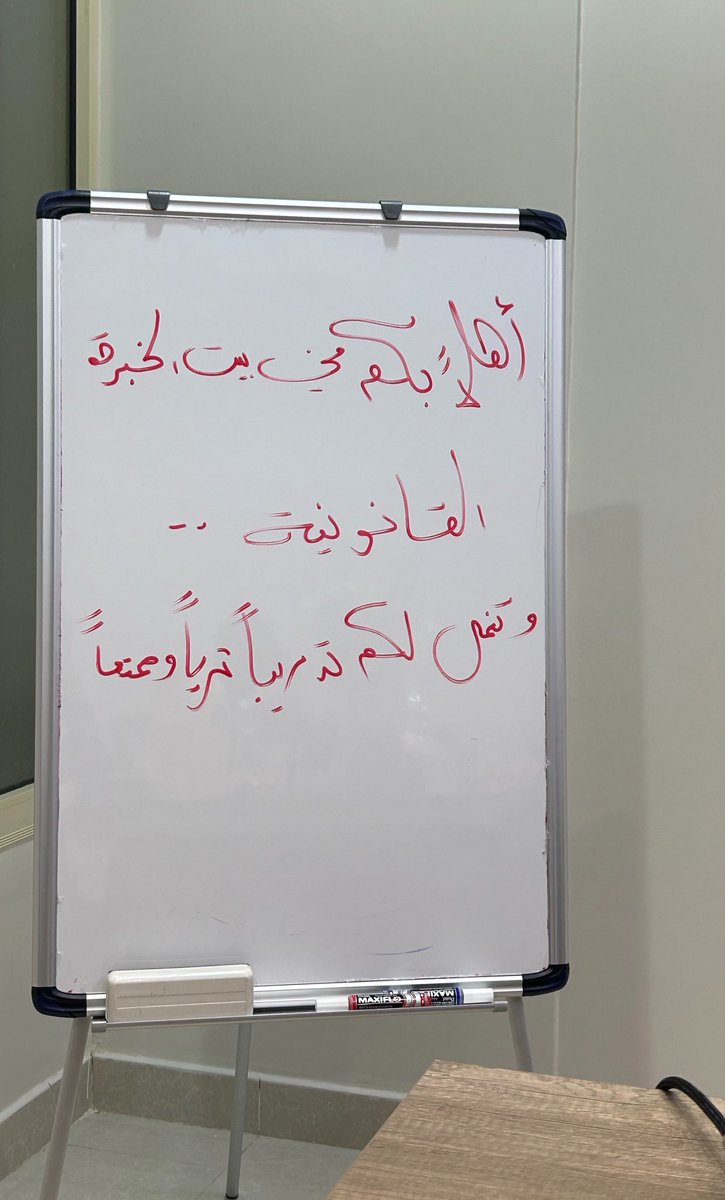 أهلاً بكم في بيت الخبرة
القانونية ..
ونأمل لكم تدريباً ثرياً وممتعاً
MAXIFLO